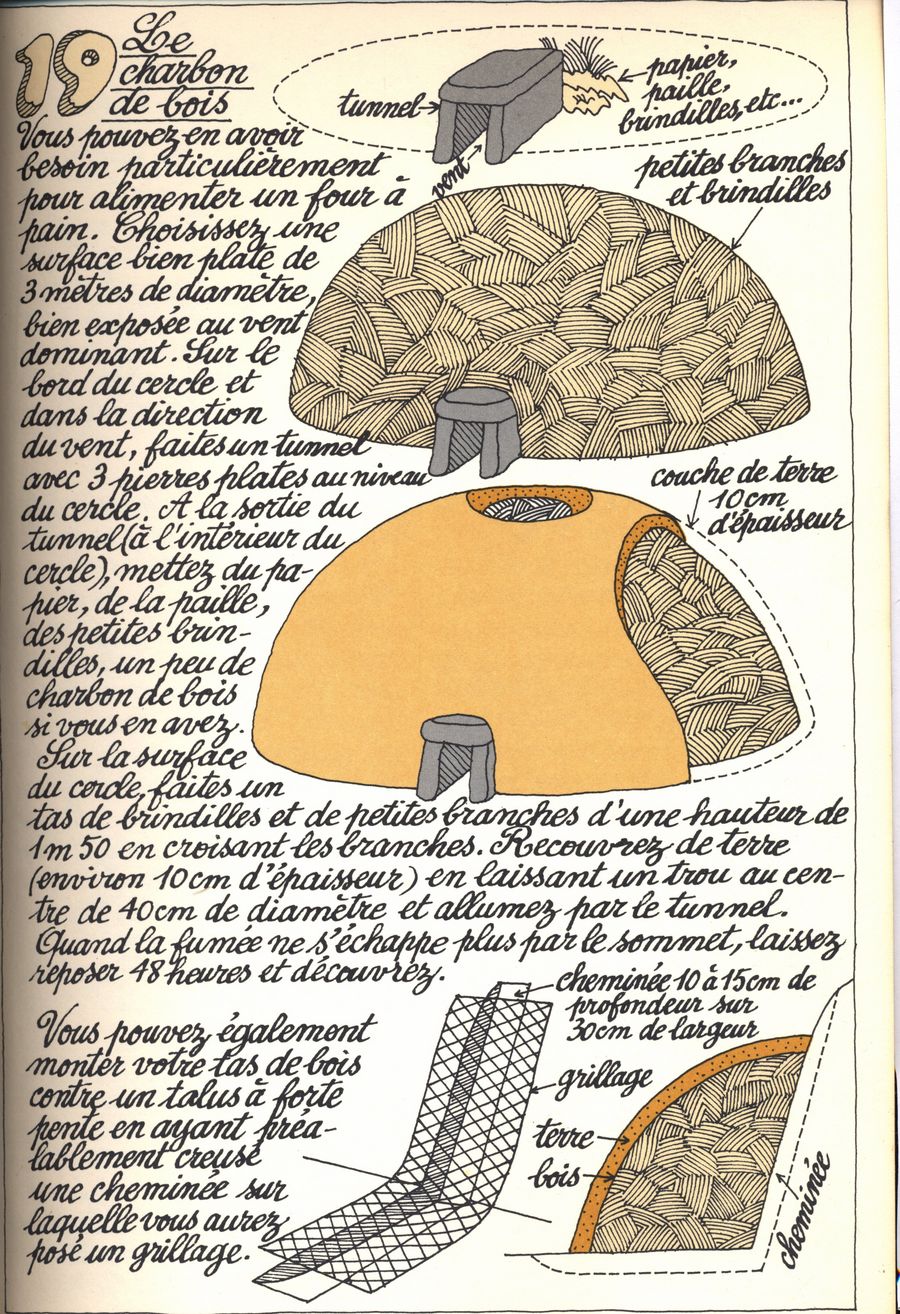 19
Le
charbon
de bois
tunnel
vent
papier,
paille,
brindilles, etc...
Vous pouvez en avoir
besoin particulièrement
pour alimenter un four à
pain. Choisissez une
surface bien plate de
3 mètres de diamètre,
bien exposée au vent
dominant. Sur le
bord du cercle et
dans la direction
du vent, faites un tunnel
avec 3 pierres plates au niveau
du cercle. A la sortie du
tunnel (à l'intérieur du
cercle), mettez du pa-
pier, de la paille,
des petites brin-
dilles, un peu de
charbon de bois
si vous en avez.
Sur la surface
du cercle, faites un
tas de brindilles et de petites branches d'une hauteur de
1m 50 en croisant les branches. Recouvrez de terre
(environ 10cm d'épaisseur) en laissant un trou au cen-
tre de 40cm de diamètre et allumez par le tunnel.
Quand la fumée ne s'échappe plus par le sommet, laissez
reposer 48 heures et découvrez.
petites branches
et brindilles
couche de terre
10cm
d'épaisseur
Vous pouvez également
monter votre tas de bois
contre un talus à forte
pente en ayant préa-
lablement creusé
une cheminée sur
laquelle vous aurez
posé un grillage.
cheminée 10 à 15cm de
profondeur sur
30cm de largeur
grillage
terre
bois
cheminée